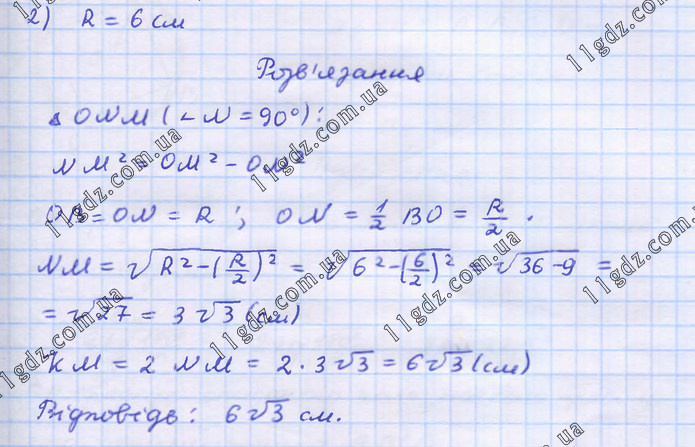 2) R = 6 см
Розв'язання
△ ONM (∠N = 90°):
NM² = OM² - ON²
OB = ON = R ; ON = 1/2 BO = R/2 .
NM = √(R² - (R/2)²) = √(6² - (6/2)²) = √(36-9) =
= √27 = 3√3 (см)
KM = 2 NM = 2 · 3√3 = 6√3 (см)
Відповідь: 6√3 см.
11gdz.com.ua
11gdz.com.ua
11gdz.com.ua
11gdz.com.ua
11gdz.com.ua
11gdz.com.ua
11gdz.com.ua
11gdz.com.ua